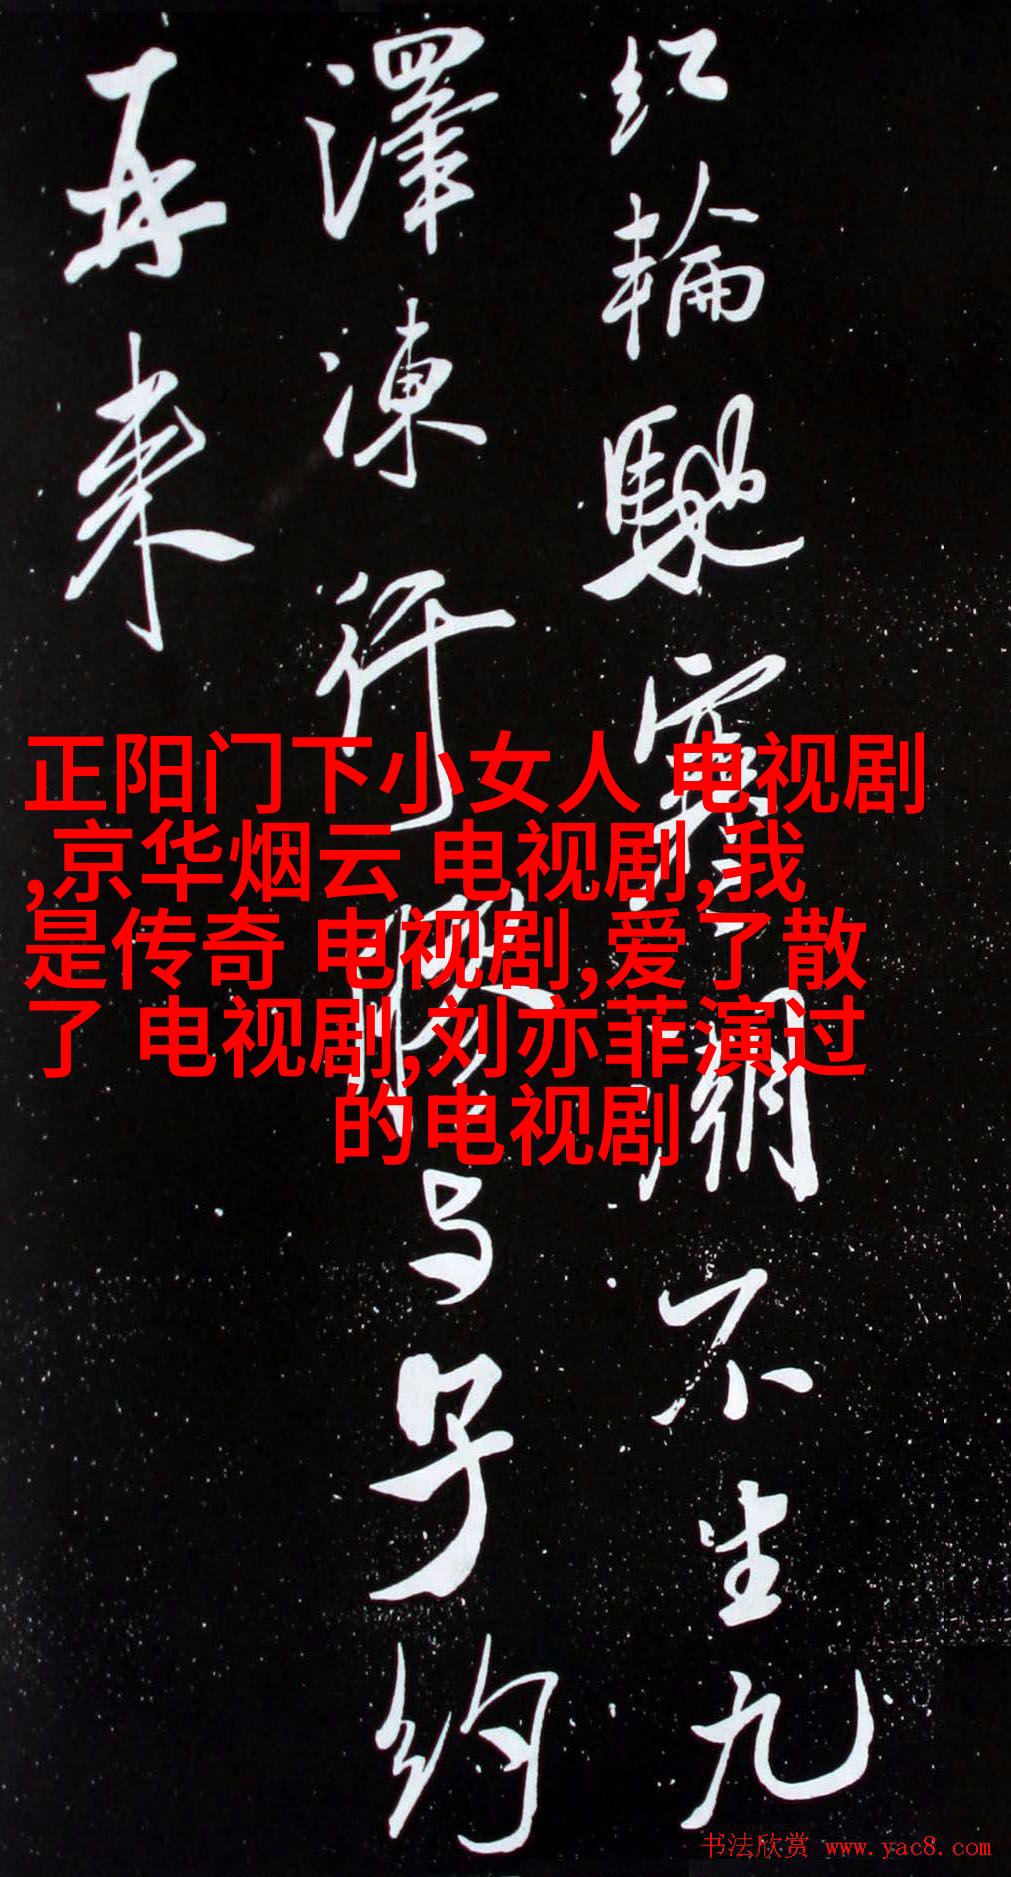 红轮驰寒
不生九
澤凍行
与子约
再来
正阳门下小女人 电视剧
,京华烟云 电视剧,我
是传奇 电视剧,爱了散
了 电视剧,刘亦菲演过
的电视剧
书法欣赏 www.yac8.com